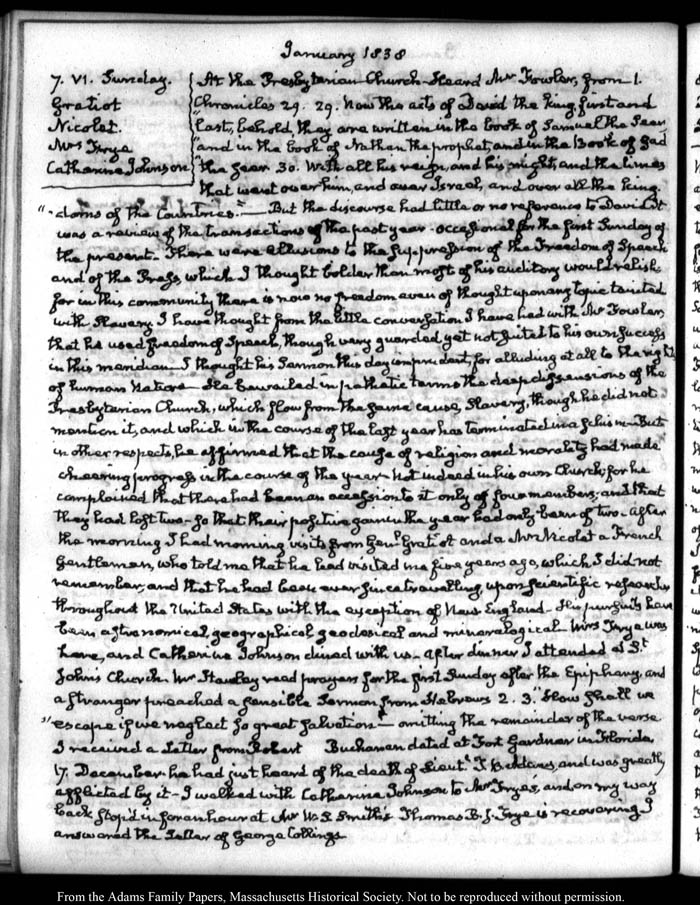 January 1838
7. VI. Sunday. At the Presbyterian Church Heard Mr Fowler, from 1.
Gratiot Chronicles 29. 29. Now the acts of David the King first and
Nicolet. "last, behold, they are written in the book of Samuel the Seer
Mrs Frye "and in the book of Nathan the prophet, and in the Book of Gad
Catharine Johnson "the Seer 30. With all his reign, and his might, and the times
that went over him, and over Israel, and over all the King-
"-doms of the Countries." — But the discourse had little or no reference to David. It
was a review of the transactions of the past year - occasional for the first Sunday of
the present. There were allusions to the suppression of the Freedom of Speech
and of the Press, which I thought bolder than most of his auditory would relish
for in this community there is now no freedom even of thought upon any topic tainted
with Slavery. I have thought from the little conversation I have had with Mr Fowler,
that he used freedom of Speech, though very guarded, yet not suited to his own success
in this meridian. I thought his Sermon this day imprudent for alluding at all to the rights
of human Nature — He bewailed in pathetic terms the deep dissensions of the
Presbyterian Church, which flow from the same cause, Slavery, though he did not
mention it, and which in the course of the last year has terminated in a schism — But
in other respects, he affirmed that the cause of religion and morality had made
cheering progress in the course of the year — Not indeed in his own Church, for he
complained that there had been an accession to it only of four members; and that
they had lost two — so that their positive gain in the year had only been of two — After
the morning I had morning visits from Genl Gratiot and a Mr Nicolet a French
Gentleman, who told me that he had visited me five years ago, which I did not
remember, and that he had been ever since travelling, upon scientific researches
throughout the United States with the exception of New England — His pursuits have
been astronomical, geographical geodesical and mineralogical — Mrs Frye was
here, and Catherine Johnson dined with us — After dinner I attended at St
John's Church. Mr Hawley read prayers for the first Sunday after the Epiphany, and
a stranger preached a sensible Sermon from Hebrews 2. 3. "How shall we
"escape if we neglect so great salvation" — omitting the remainder of the verse
I received a Letter from Robert Buchanan dated at Fort Gardner in Florida
17. December. he had just heard of the death of Lieutt T. B. Adams, and was greatly
afflicted by it — I walked with Catharine Johnson to Mr Frye's, and on my way
back stop'd in for an hour at Mr W. S. Smith's. Thomas B. J. Frye is recovering I
answered the Letter of George Collings
From the Adams Family Papers, Massachusetts Historical Society. Not to be reproduced without permission.